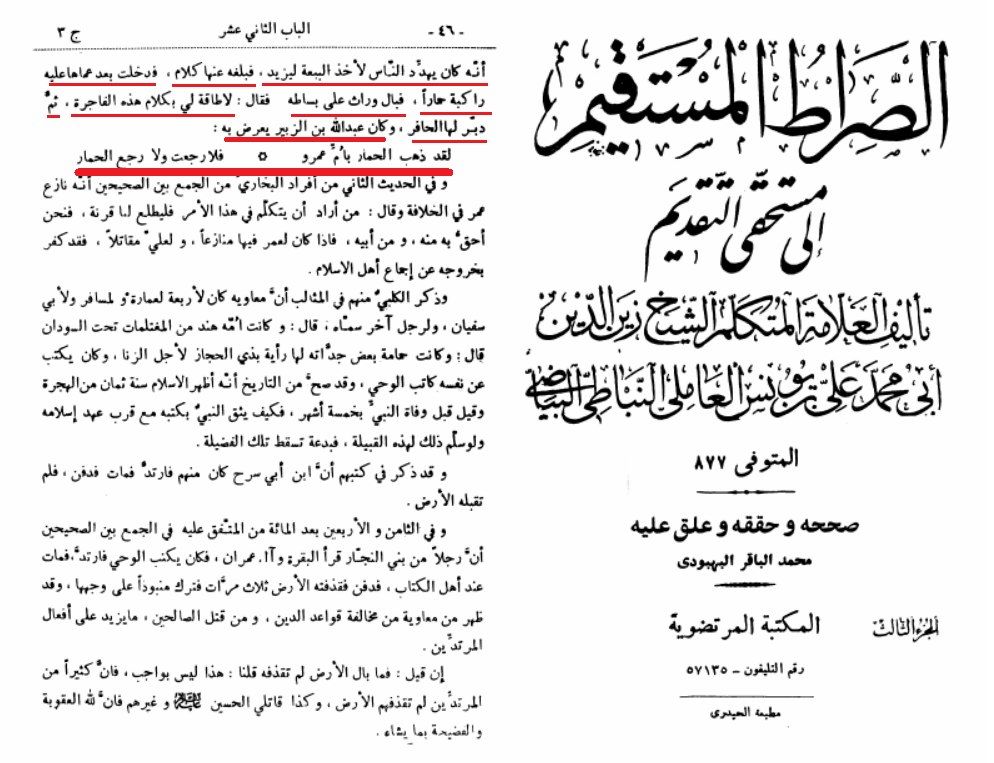 الصراط المستقيم
إلى مستحقي التقديم
تأليف العلامة المتكلم الشيخ زين الدين
أبي محمد علي بن يونس العاملي النباطي البياضي
المتوفى ٨٧٧
صححه و حققه و علق عليه
محمد الباقر البهبودى
الجزء الثالث
المكتبة المرتضوية
رقم التليفون - ٥٧١٣٥
مطبعة الحيدرى
ج ٣ الباب الثاني عشر -٤٦-
أنّه كان يهدِّد النّاس لأخذ البيعة ليزيد، فبلغه عنها كلام، فدخلت بعد عماها عليه
راكبة حماراً، فبال وراث على بساطه فقال: لا طاقة لي بكلام هذه الفاجرة، ثمَّ
دبّر لها الحافر، وكان عبدالله بن الزبير يعرض به:
لقد ذهب الحمار باُمِّ عمرو ✡ فلا رجعت ولا رجع الحمار
و في الحديث الثاني من أفراد البخاريّ من الجمع بين الصحيحين أنّه نازع
عمر في الخلافة وقال: من أراد أن يتكلّم في هذا الأمر فليطلع لنا قرنة، فنحن
أحقُّ به منه، و من أبيه، فاذا كان لعمر فيها منازعاً، و لعليّ مقاتلاً، فقد كفر
بخروجه عن إجماع أهل الاسلام.
وذكر الكلبيُّ منهم في المثالب أنَّ معاويه كان لأربعة لعمارة و لمسافر ولأبي
سفيان، ولرجل آخر سمّاه، قال: و كانت اُمّه هند من المغتلمات تحت السودان
قال: وكانت حمامة بعض جدَّاته لها رأية بذي الحجاز لأجل الزنا، وكان يكتب
عن نفسه كاتب الوحي، وقد صحَّ من التاريخ أنّه أظهر الاسلام سنة ثمان من الهجرة
وقيل قبل وفاة النبيِّ بخمسة أشهر، فكيف يثق النبيُّ بكتبه مع قرب عهد إسلامه
ولوسلّم ذلك لهذه القبيلة، فبدعة تسقط تلك الفضيلة.
و قد ذكر في كتبهم أنَّ ابن أبي سرح كان منهم فارتدَّ فمات فدفن، فلم
تقبله الأرض.
و في الثامن و الأربعين بعد المائة من المتّفق عليه في الجمع بين الصحيحين
أنَّ رجلاً من بني النجّار قرأ البقرة وآل عمران، فكان يكتب الوحي فارتدَّ، فمات
عند أهل الكتاب، فدفن فقذفته الأرض ثلاث مرَّات فترك منبوذاً على وجهها، وقد
ظهر من معاوية من مخالفة قواعد الدين، و من قتل الصالحين، مايزيد على أفعال
المرتدِّين.
إن قيل: فما بال الأرض لم تقذفه قلنا: هذا ليس بواجب، فانَّ كثيراً من
المرتدِّين لم تقذفهم الأرض، وكذا قاتلي الحسين عليه السلام و غيرهم فانَّ لله العقوبة
والفضيحة بما يشاء.